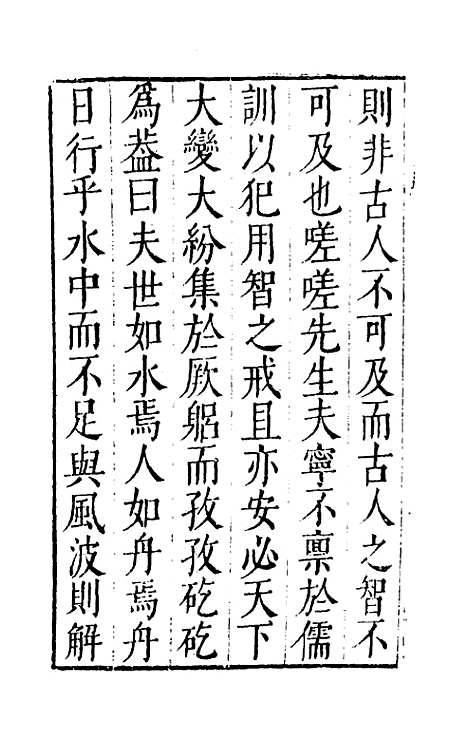 則非古人不可及而古人之智不
可及也嗟嗟先生夫寧不禀於儒
訓以犯用智之戒且亦安必天下
大變大紛集於厥躬而孜孜矻矻
為葢曰夫世如水焉人如舟焉舟
日行乎水中而不足與風波則解